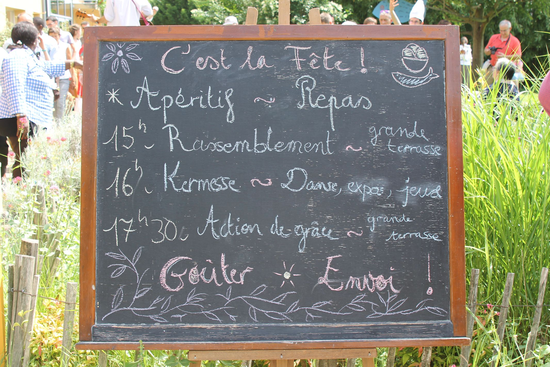 C'est la Fête !
Apéritif ~ Repas
15h Rassemblement ~ grande terrasse
16h Kermesse ~ Danse, expos, jeux
17h30 Action de grâce ~ grande terrasse
Goûter Envoi !